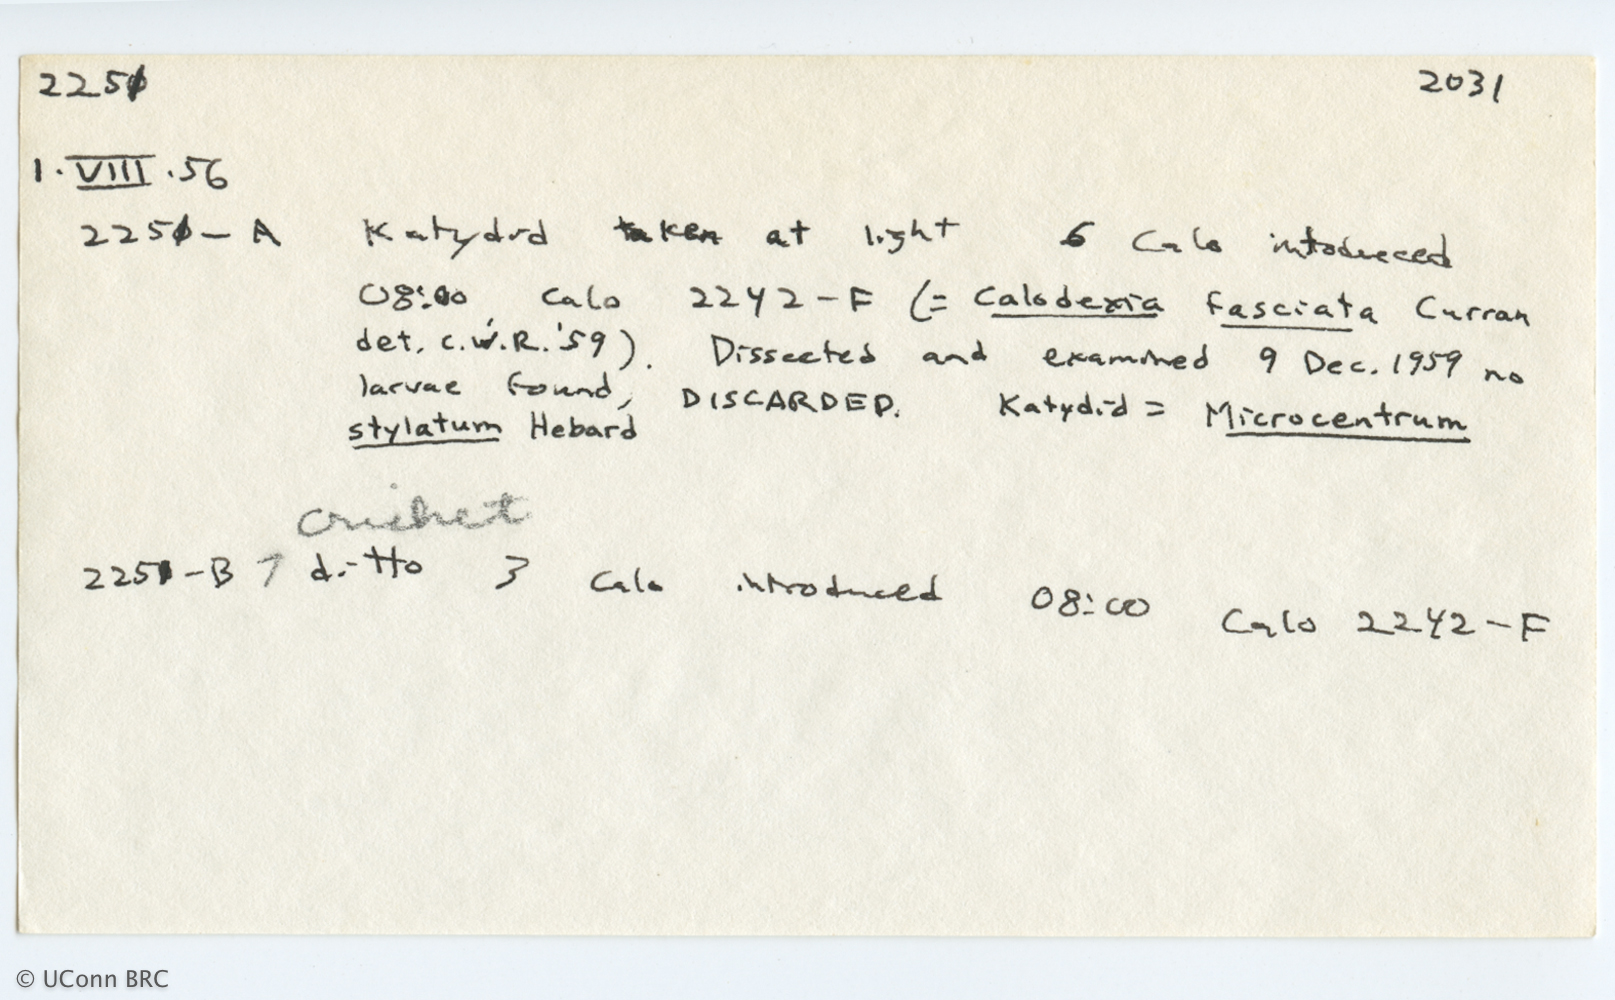 2251 2031
1.VIII.56
2251-A Katydid taken at light 6 Calo intoduced
08:00 Calo 2242-F (= Calodexia fasciata Curran
det. C.W.R. '59). Dissected and examined 9 Dec. 1959 no
larvae found, DISCARDED. Katydid = Microcentrum
stylatum Hebard
cricket
2251-B ↑ ditto 3 Calo introduced 08:00 Calo 2242-F
© UConn BRC